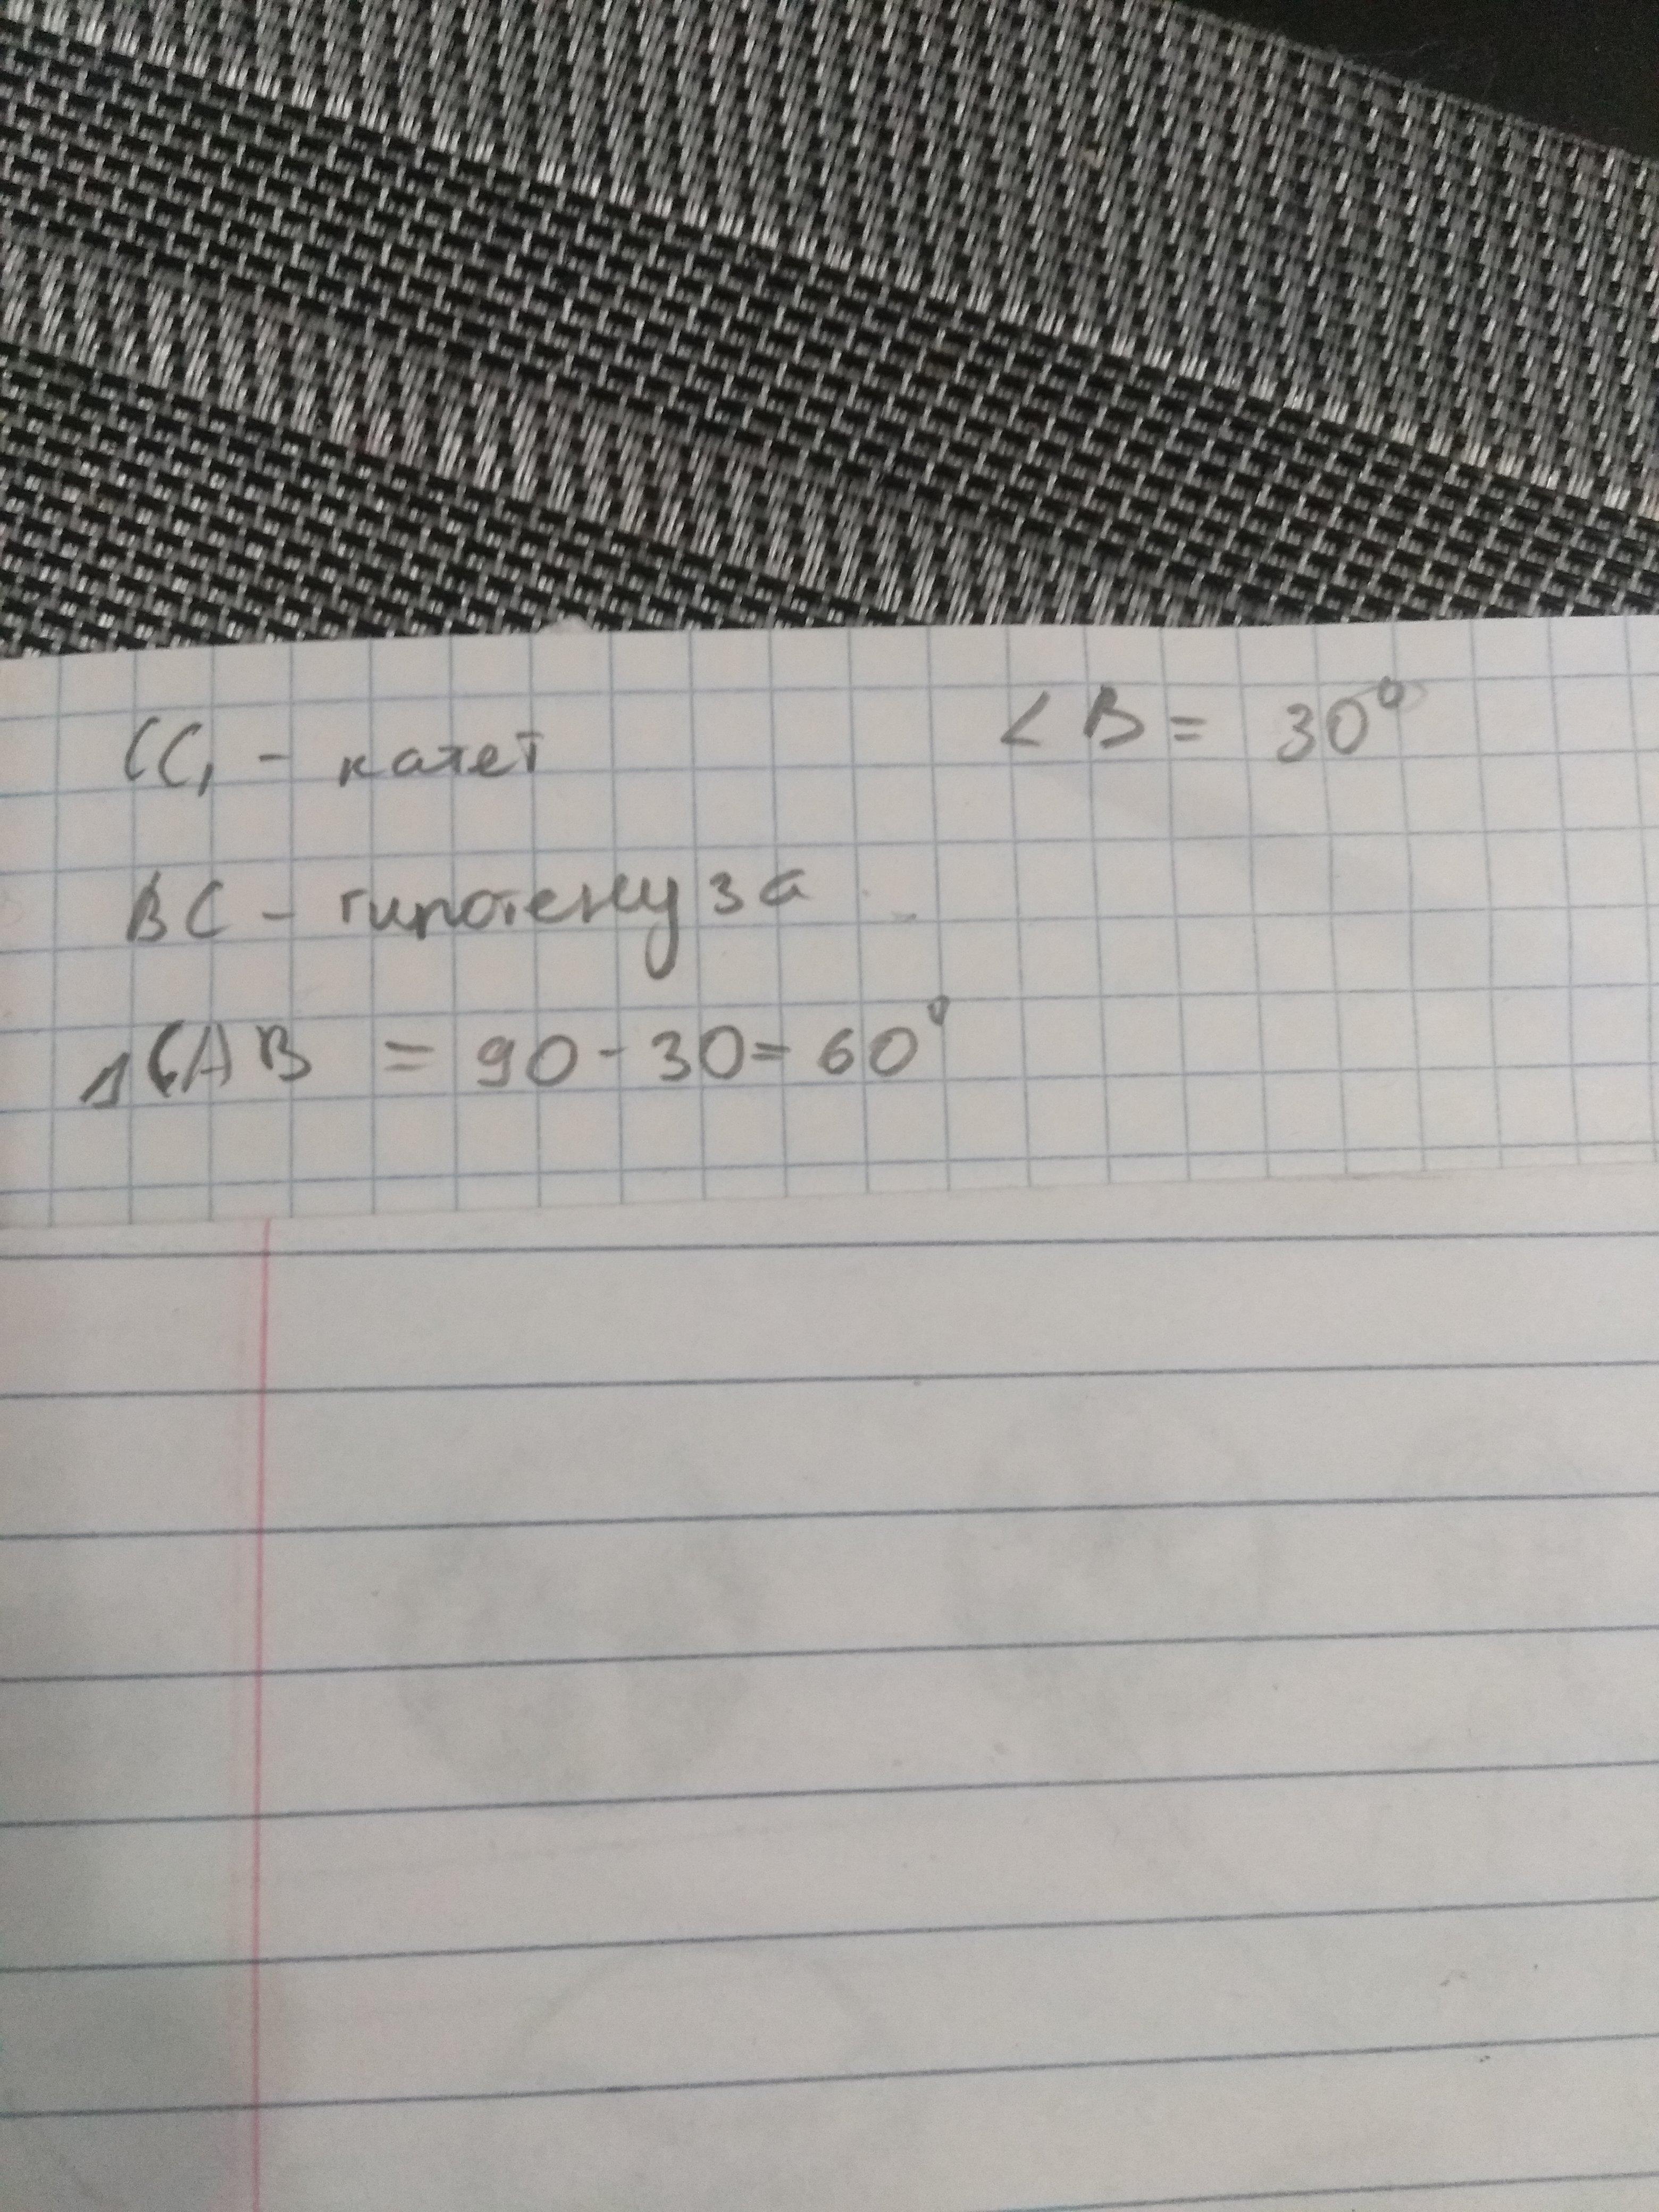 CC₁ - катет
∠B = 30°
BC - гипотенуза
∠CAB = 90 - 30 = 60°